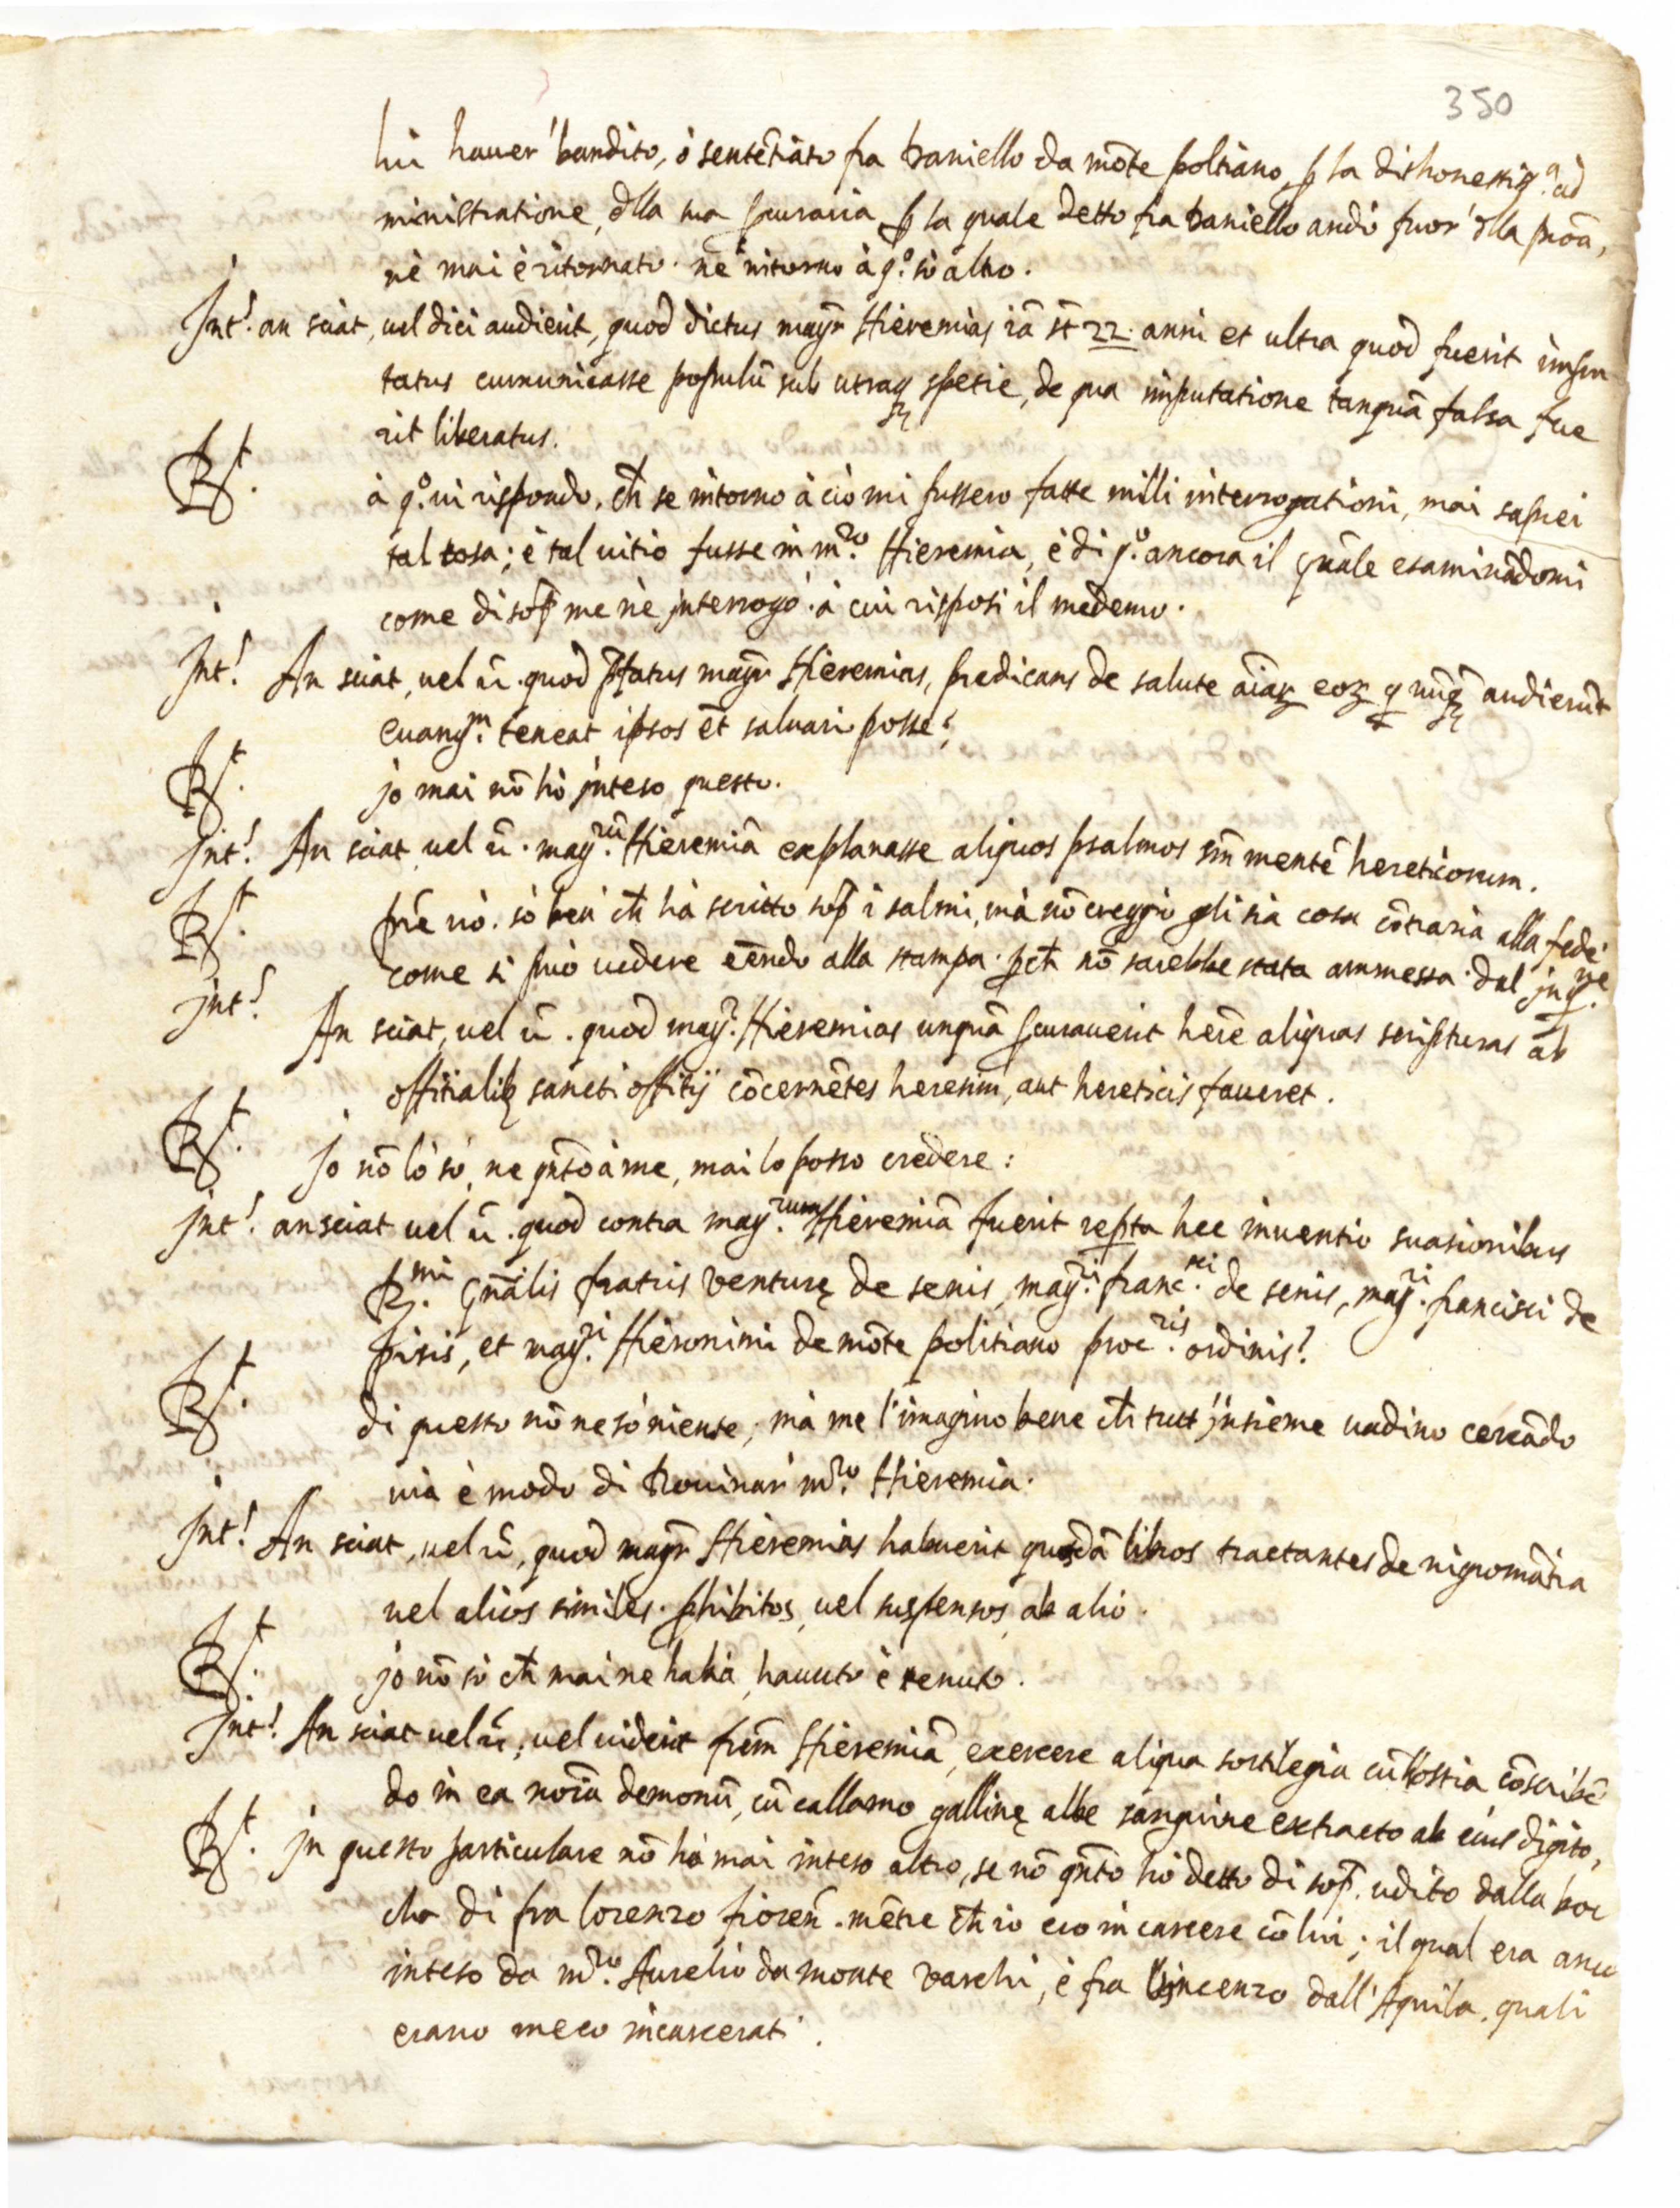 350
lui hauer' bandito, ò sentẽtiato fra Daniello da mõte poltiano, ꝑ la dishonestiss.ᵃ ad
ministratione, dlla sua ꝓcuraria ꝑ la quale detto fra Daniello andò fuor' dlla ꝓuĩa,
nè mai è ritornato. nè intorno à q.º sò altro.
Int.ˢ an sciat, uel dici audierit, quod dictus magr̃ Hieremias iã st 22. anni et ultra quod fuerit impu
tatus cumunicasse populũ sub utraq; spetie, de qua imputatione tanquã falsa fue
rit liberatus.
R.ᵗ à q.º ui rispondo, ch̃ se intorno à ciò mi fussero fatte milli interrogationi, mai saprei
tal cosa; è tal uitio fusse in m.ʳᵒ Hieremia, è di q.º ancora il quãle esaminãdomi
come di sop̃ me nè interrogò. à cui risposi il medemo.
Int.ˢ An sciat, uel ũ. quod p̃fatus magr̃ Hieremias, predicans de salute aĩaꝝ eoꝝ q̃ nũq̃ audierũt
euang.ᵐ teneat ipsos ẽt saluari posse;
R.ᵗ jo mai nõ hò jnteso questo.
jnt.ˢ An sciat uel ũ. mag.ʳũ Hieremiã explanasse aliquos psalmos sm̃ mentẽ hereticorum.
R.ᵗ pr̃e nò. sò ben ch̃ hà scritto sop̃ i salmi, mà nõ creggio gli sia cosa cõtraria alla fede
come si può uedere eẽndo alla stampa. ꝑch̃ nõ sarebbe stata ammessa dal jnq.ʳᵉ
jnt.ˢ An sciat, uel ũ. quod mag.ʳ Hieremias unquã ꝓcurauerit herẽ aliquas scripturas ab
offitialib; sancti offitij cõcernẽtes heresim, aut hereticis faueret.
R.ᵗ jo nõ lò sò, ne qñto à me, mai lo posso credere:
jnt.ˢ an sciat uel ũ. quod contra mag.ʳᵘᵐ Hieremiã fuerit repta hec inuentio suasionibus
R.ᵐⁱ gñalis fratris Venturę de senis, mag.ʳⁱ franc.ˢᶜⁱ de senis, mag.ʳⁱ francisci de
pisis, et mag.ʳⁱ Hieronimi de mõte politiano proc.ʳⁱˢ ordinis?
R.ᵗ di questo nõ ne sò niente; mà me l'imagino bene ch̃ tutt' jnsieme uadino cercãdo
uia è modo di Rouinar' m.ʳᵒ Hieremia.
jnt.ˢ An sciat, uel ũ, quod magr̃ Hieremias habuerit quosdã libros tractantes de nigromãtia
uel alios similes. ꝓhibitos, uel suspensos, ab alio.
R.ᵗ jo nõ sò ch̃ mai ne habia, hauuto è tenuto.
Int.ˢ An sciat uel ũ, uel uiderit frẽm Hieremiã, exercere aliqua sortilegia cũ hostia cõscribẽ
do in ea noĩa demonũ, cũ callamo gallinę albe sanguine extracto ab eius digito,
R.ᵗ jn questo particulare nõ hò mai inteso altro, se nõ qñto hò detto di sop̃. udito dalla boc
cha di fra lorenzo fioreñ. mẽtre ch̃ io ero in carcere cõ lui; il qual era anco
inteso da m.ʳᵒ Aurelio da monte Varchi, è fra Vincenzo dall'Aquila, quali
erano meco incarcerati.